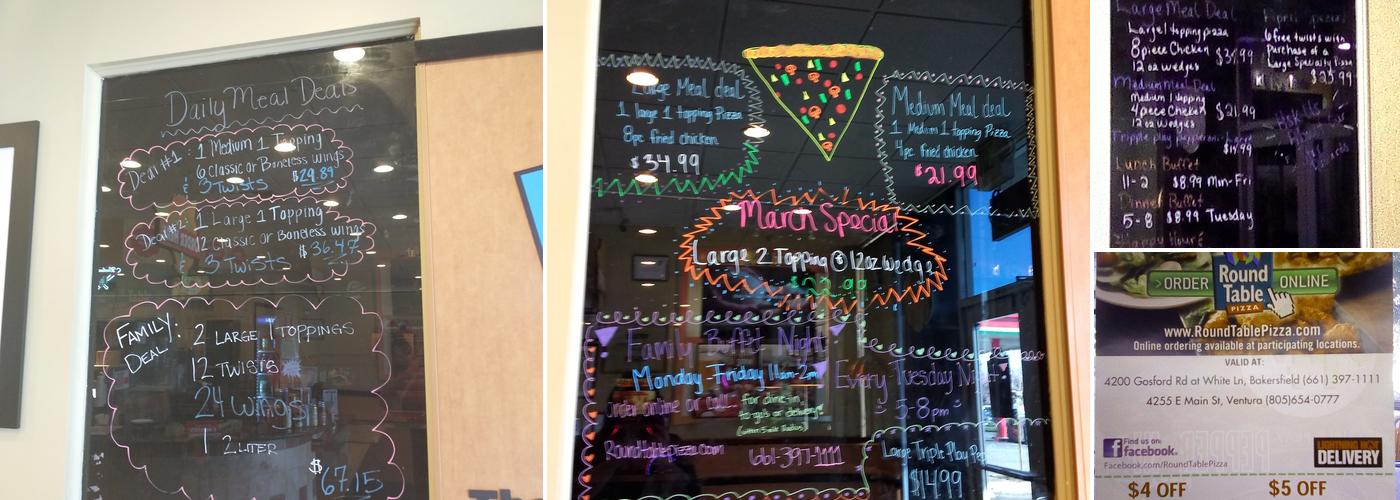 Daily Meal Deals
Deal #1: 1 Medium 1 Topping
6 Classic or Boneless wings
& 3 Twists $29.89
Deal #2 1 Large 1 Topping
12 Classic or Boneless wings
& 3 Twists $36.47
FAMILY DEAL:
2 LARGE 1 TOPPINGS
12 TWISTS
24 Wings
1 2 LITER
$67.15
Large Meal deal
1 large 1 topping Pizza
8pc fried chicken
$34.99
Medium Meal deal
1 Medium 1 topping Pizza
4pc fried chicken
$21.99
March Special
Large 2 Topping 12oz wedge
Family Buffet Night
Monday-Friday 11am-2pm
Every Tuesday Night
5-8pm
Order online or call
for dine-in,
to-go's or delivery!
RoundTablepizza.com
661-397-1111
Large Triple Play Pe
$14.99
Large Meal Deal
Large 1 topping pizza
8 piece Chicken
12 oz wedges
$34.99
April Special
6 free twists with
Purchase of a
Large Specialty Pizza
Medium Meal Deal
Medium 1 topping
4 piece Chicken
12 oz wedges
$21.99
Tripple play pepperoni Large
$14.99
Lunch Buffet
11-2 $8.99 Mon-Fri
Dinner Buffet
5-8 $8.99 Tuesday
Happy Hour
>ORDER
Round
Table
PIZZA
ONLINE
www.RoundTablePizza.com
Online ordering available at participating locations.
VALID AT:
4200 Gosford Rd at White Ln, Bakersfield (661) 397-1111
4255 E Main St, Ventura (805)654-0777
Find us on:
facebook.
Facebook.com/RoundTablePizza
LIGHTNING HOT
DELIVERY
$4 OFF
$5 OFF